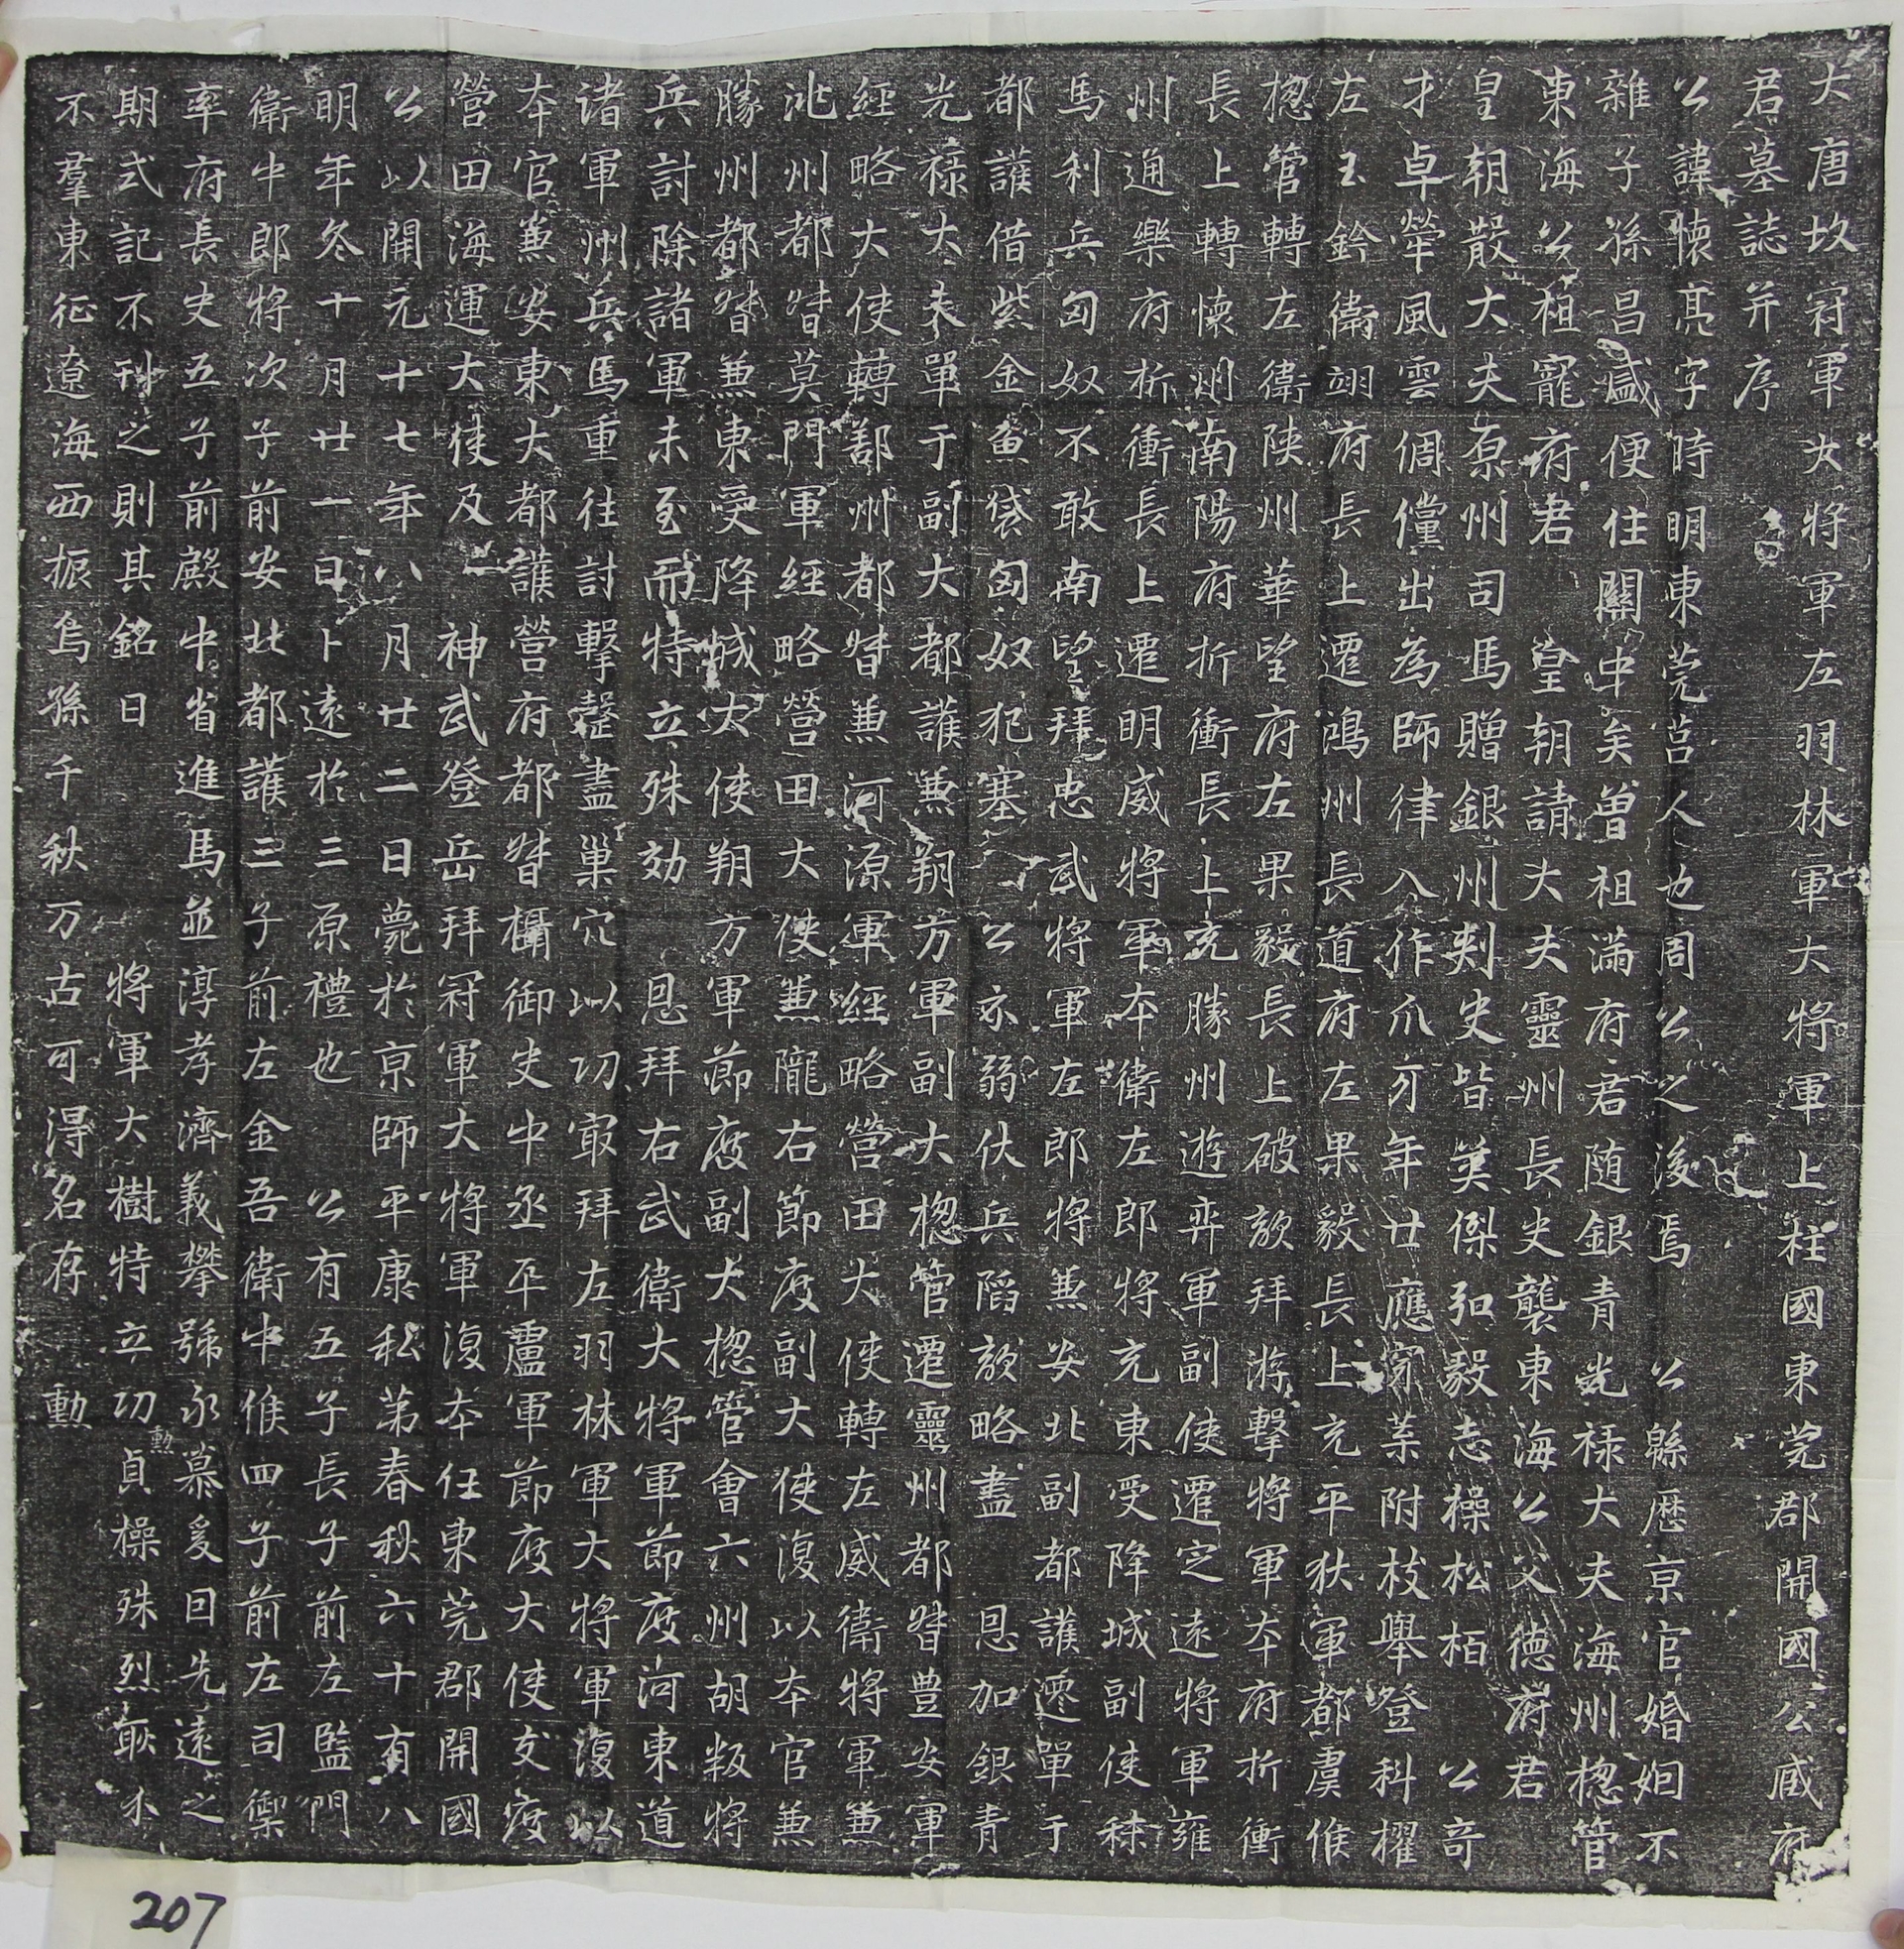 大唐故冠軍大將軍左羽林軍大將軍上柱國東莞郡開國公臧府
君墓誌并序
公諱懷亮字時明東莞莒人也周公之後焉公緜歷京官婚姻不
雜子孫昌盛便住關中矣曾祖滿府君隨銀青光祿大夫海州揔管
東海公祖寵府君皇朝請大夫靈州長史襲東海公父德府君
皇朝散大夫原州司馬贈銀州刺史皆英傑弘毅志操松栢公奇
才卓犖風雲倜儻出為師律入作爪牙年廿應家業附枝舉登科擢
左玉鈐衛翊府長上遷鴻州長道府左果毅長上充平狄軍都虞候
揔管轉左衛陝州華望府左果毅長上破敵拜游擊將軍本府折衝
長上轉懷州南陽府折衝長上充勝州遊弈軍副使遷定遠將軍雍
州通樂府折衝長上遷明威將軍本衛左郎將充東受降城副使秣
馬利兵匈奴不敢南望拜忠武將軍左郎將兼安北副都護遷單于
都護借紫金魚袋匈奴犯塞公示弱伏兵陷敵略盡恩加銀青
光祿大夫單于副大都護兼朔方軍副大揔管遷靈州都督豊安軍
經略大使轉鄯州都督兼河源軍經略營田大使轉左威衛將軍兼
洮州都督莫門軍經略營田大使兼隴右節度副大使復以本官兼
勝州都督兼東受降城大使朔方軍節度副大揔管會六州胡叛將
兵討除諸軍未至而特立殊効恩拜右武衛大將軍節度河東道
諸軍州兵馬重往討擊罄盡巢穴以功寂拜左羽林軍大將軍復以
本官兼安東大都護營府都督攝御史中丞平盧軍節度大使支度
營田海運大使及神武登岳拜冠軍大將軍復本任東莞郡開國
公以開元十七年八月廿二日薨於京師平康私第春秋六十有八
明年冬十月廿一日卜遠於三原禮也公有五子長子前左監門
衛中郎將次子前安北都護三子前左金吾衛中候四子前左司禦
率府長史五子前殿中省進馬並淳孝濟義攀號永慕爰曰先遠之
期式記不刊之則其銘曰將軍大樹特立功勳貞操殊烈耿介
不羣東征遼海西振烏孫千秋万古可得名存勳
207